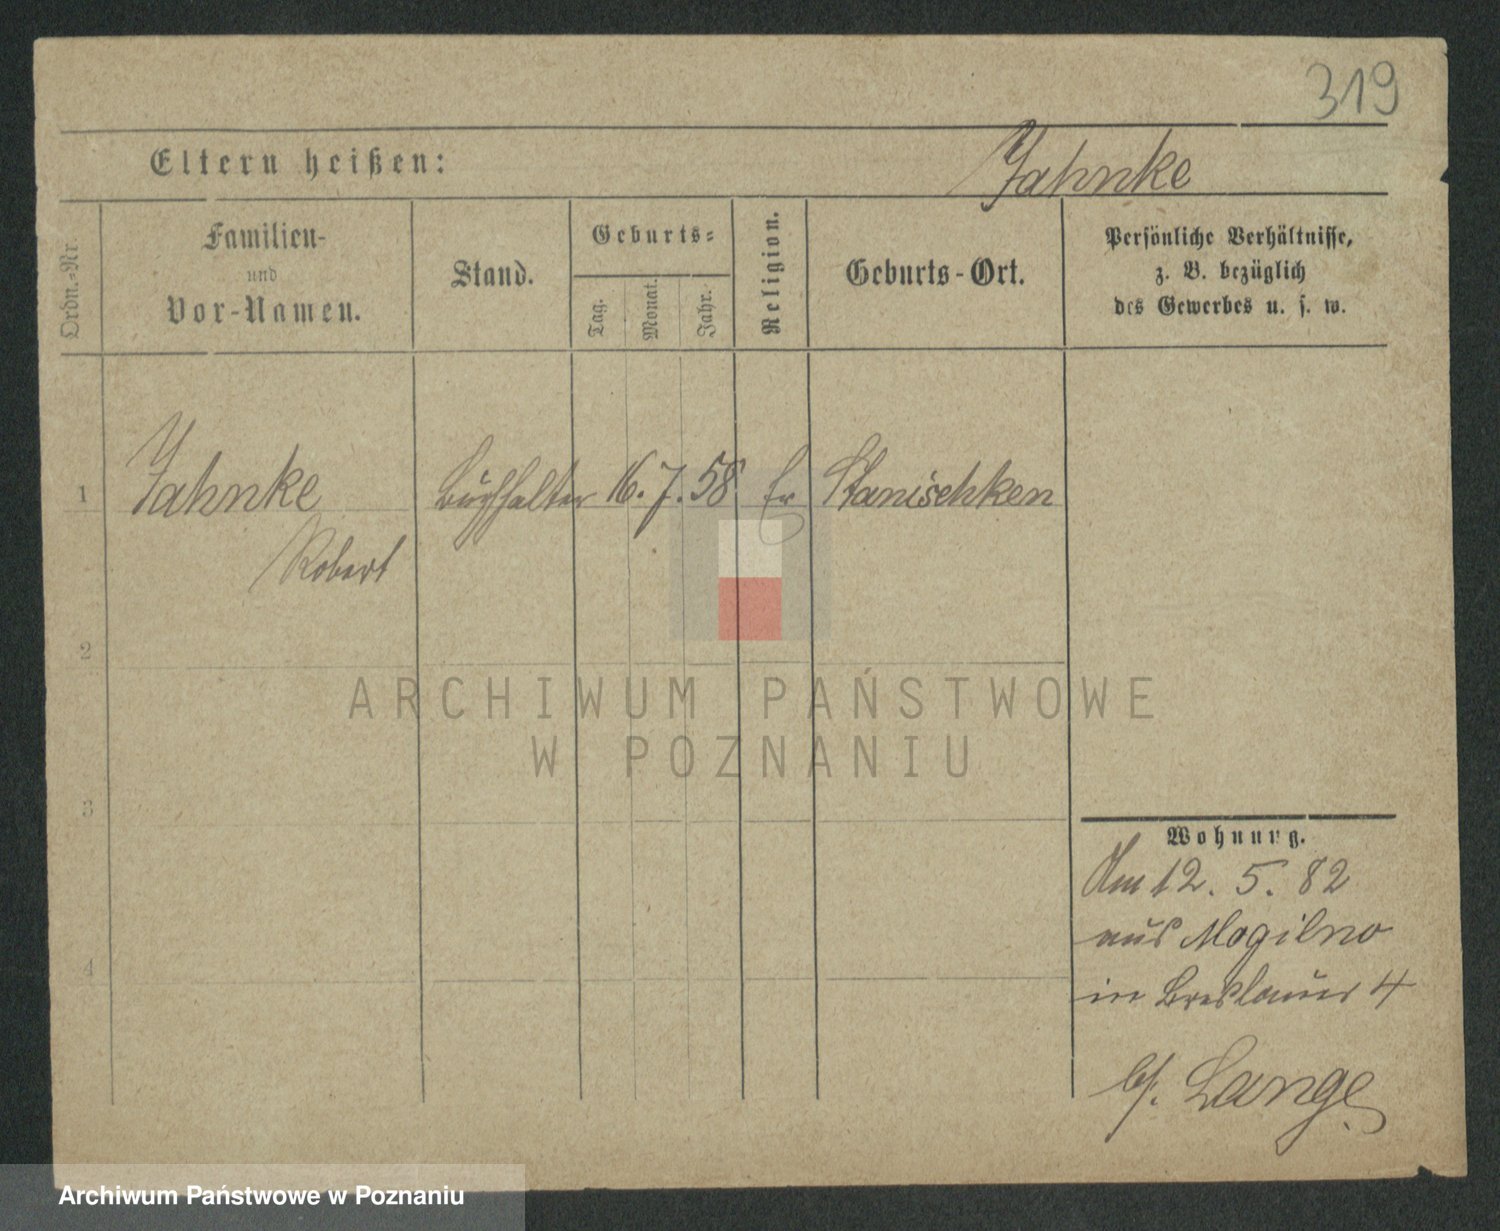 319
Eltern heißen:
Jahnke
Ordn.-Nr.
Familien-
und
Vor-Namen.
Stand.
Geburts-
Tag.
Monat.
Jahr.
Religion.
Geburts-Ort.
Persönliche Verhältnisse,
z. B. bezüglich
des Gewerbes u. s. w.
1 Jahnke Buchhalter 16. 7. 58 Ev Stanischken
Robert
2
ARCHIWUM PAŃSTWOWE
W POZNANIU
3
Wohnung.
Am 12. 5. 82
aus Mogilno
4
in Breslauer 4
bei Lange
Archiwum Państwowe w Poznaniu